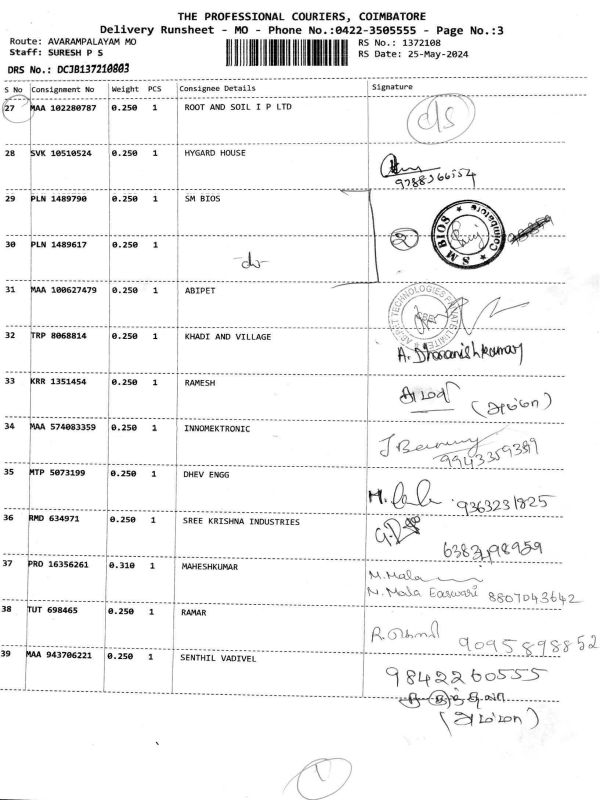 THE PROFESSIONAL COURIERS, COIMBATORE
Delivery Runsheet - MO - Phone No.:0422-3505555 - Page No.:3
Route: AVARAMPALAYAM MO
RS No.: 1372108
Staff: SURESH P S
RS Date: 25-May-2024
DRS No.: DCJB137210803
S No Consignment No Weight PCS Consignee Details Signature
27 MAA 102280787 0.250 1 ROOT AND SOIL I P LTD d/s
28 SVK 10510524 0.250 1 HYGARD HOUSE
29 PLN 1489790 0.250 1 SM BIOS
S M BIOS * Coimbatore *
2
30 PLN 1489617 0.250 1
-do-
31 MAA 100627479 0.250 1 ABIPET
32 TRP 8068814 0.250 1 KHADI AND VILLAGE A. Dharanishkumar
33 KRR 1351454 0.250 1 RAMESH
34 MAA 574083359 0.250 1 INNOMEKTRONIC
9943359389
35 MTP 5073199 0.250 1 DHEV ENGG
9363231825
36 RMD 634971 0.250 1 SREE KRISHNA INDUSTRIES
37 PRO 16356261 0.310 1 MAHESHKUMAR M. Mala
N. Mala Easwari 8807043642
38 TUT 698465 0.250 1 RAMAR
9095898852
39 MAA 943706221 0.250 1 SENTHIL VADIVEL 9842260555
(அம்மா)